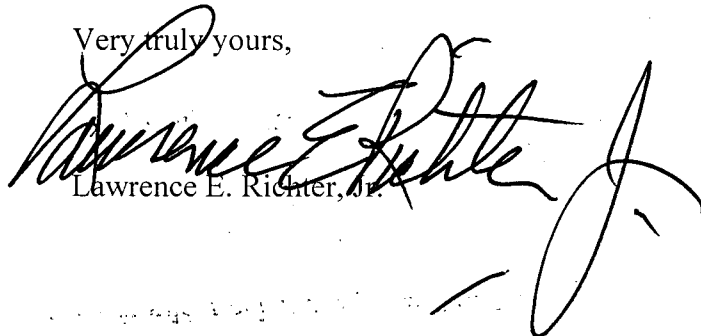 Very truly yours,
Lawrence E Richter Jr.
Lawrence E. Richter, Jr.